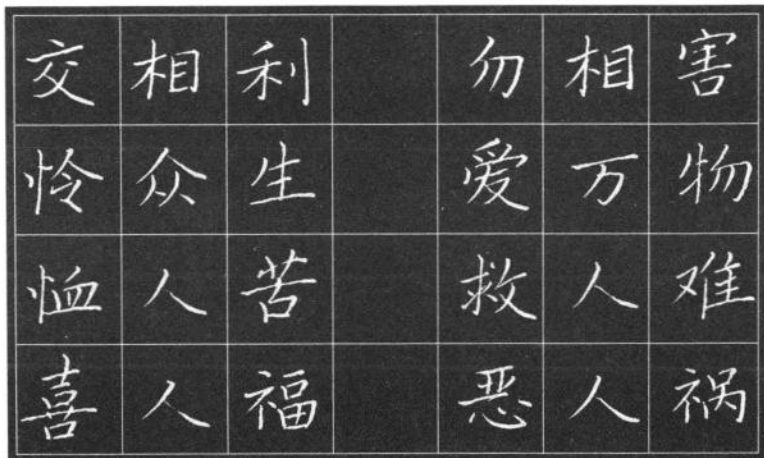 交相利 勿相害
怜众生 爱万物
恤人苦 救人难
喜人福 恶人祸